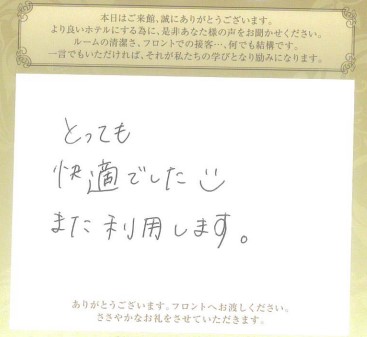 本日はご来館、誠にありがとうございます。
より良いホテルにする為に、是非あなた様の声をお聞かせください。
ルームの清潔さ、フロントでの接客…、何でも結構です。
一言でもいただければ、それが私たちの学びとなり励みになります。
とっても
快適でした
また利用します。
ありがとうございます。フロントへお渡しください。
ささやかなお礼をさせていただきます。